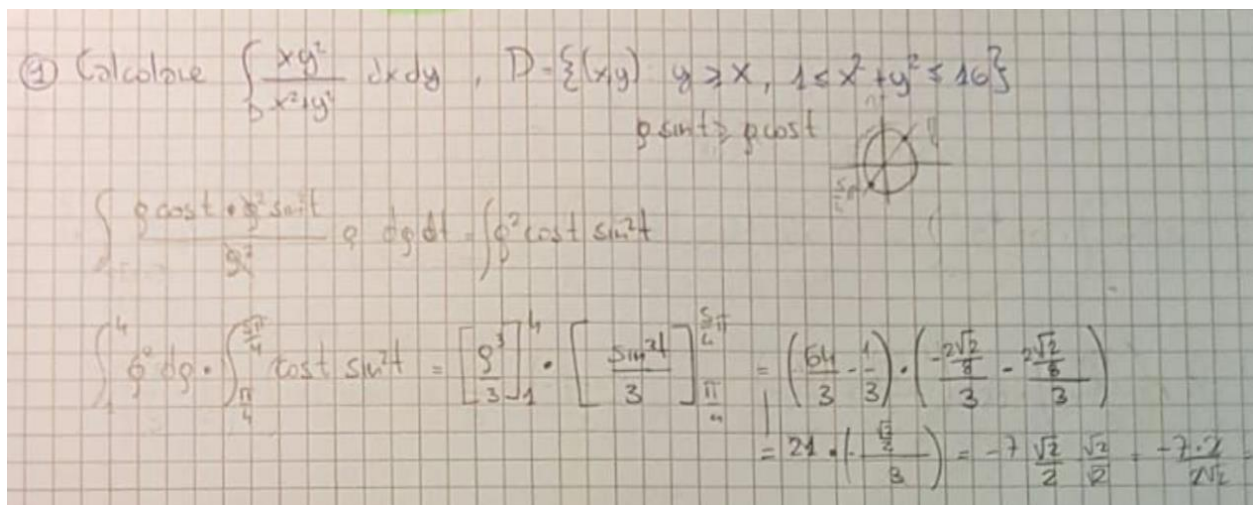 ① Calcolare ∫_D xy²/(x²+y²) dx dy , D = {(x,y) y ≥ x, 1 ≤ x²+y² ≤ 16}
ρ sin t ≥ ρ cos t
5/4 π
∫ (ρ cos t • ρ² sin² t)/ρ² ρ dρ dt = ∫ ρ² cos t sin² t
∫_1^4 ρ² dρ • ∫_{π/4}^{5π/4} cos t sin² t = [ρ³/3]_1^4 • [sin³ t/3]_{π/4}^{5/4 π} = (64/3 - 1/3) • ((-2√2/8)/3 - (2√2/8)/3)
= 21 • (-(√2/2)/3) = -7 √2/2 √2/√2 = -7·2/2√2 =